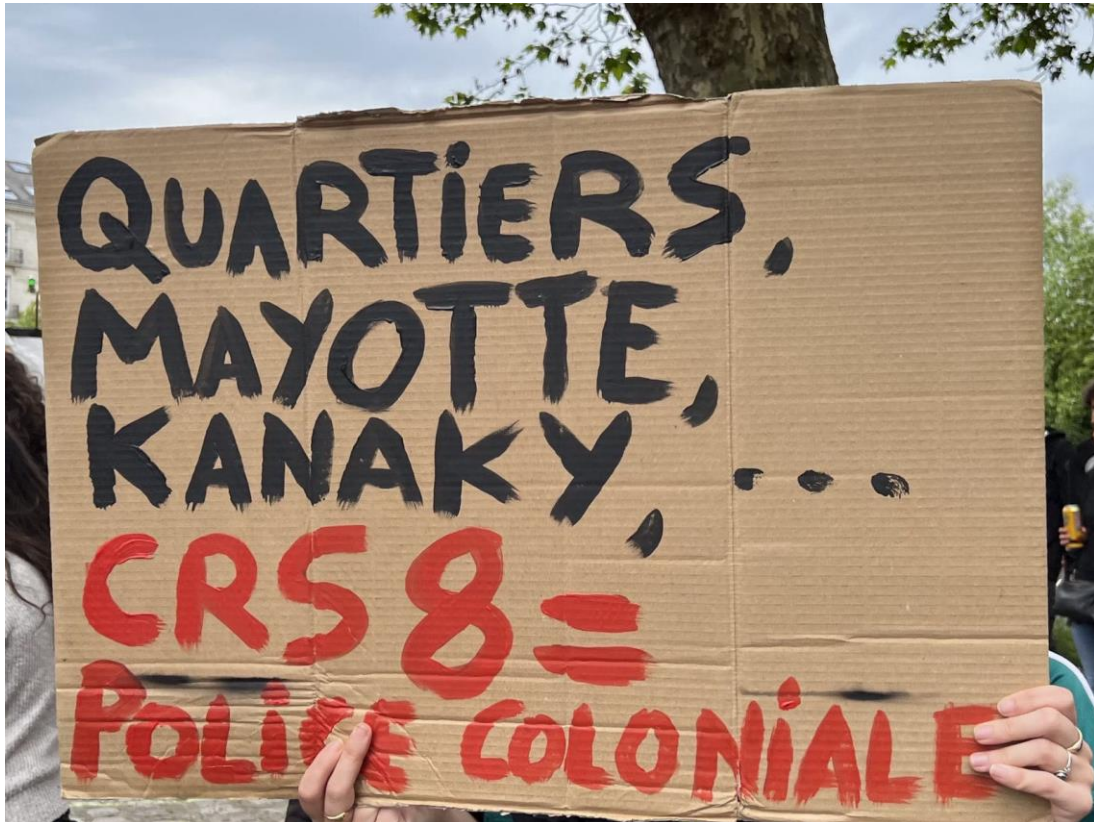 QUARTIERS,
MAYOTTE,
KANAKY, ...
CRS 8 =
POLICE COLONIALE